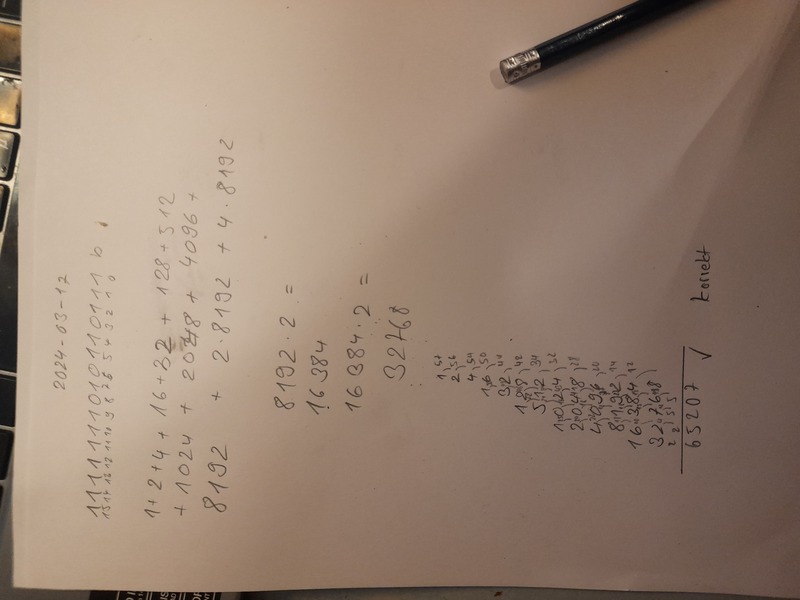 2024-03-17
1111111010110111 b
15 14 13 12 11 10 9 8 7 6 5 4 3 2 1 0
1+2+4+16+32+128+512
+1024 + 2048 + 4096 +
8192 + 2·8192 + 4·8192
8192·2 =
16384
16384·2 =
32768
1
2
4
16
32
128
512
1024
2048
4096
8192
16384
32768
2 2 5 5
65207 ✓ korrekt